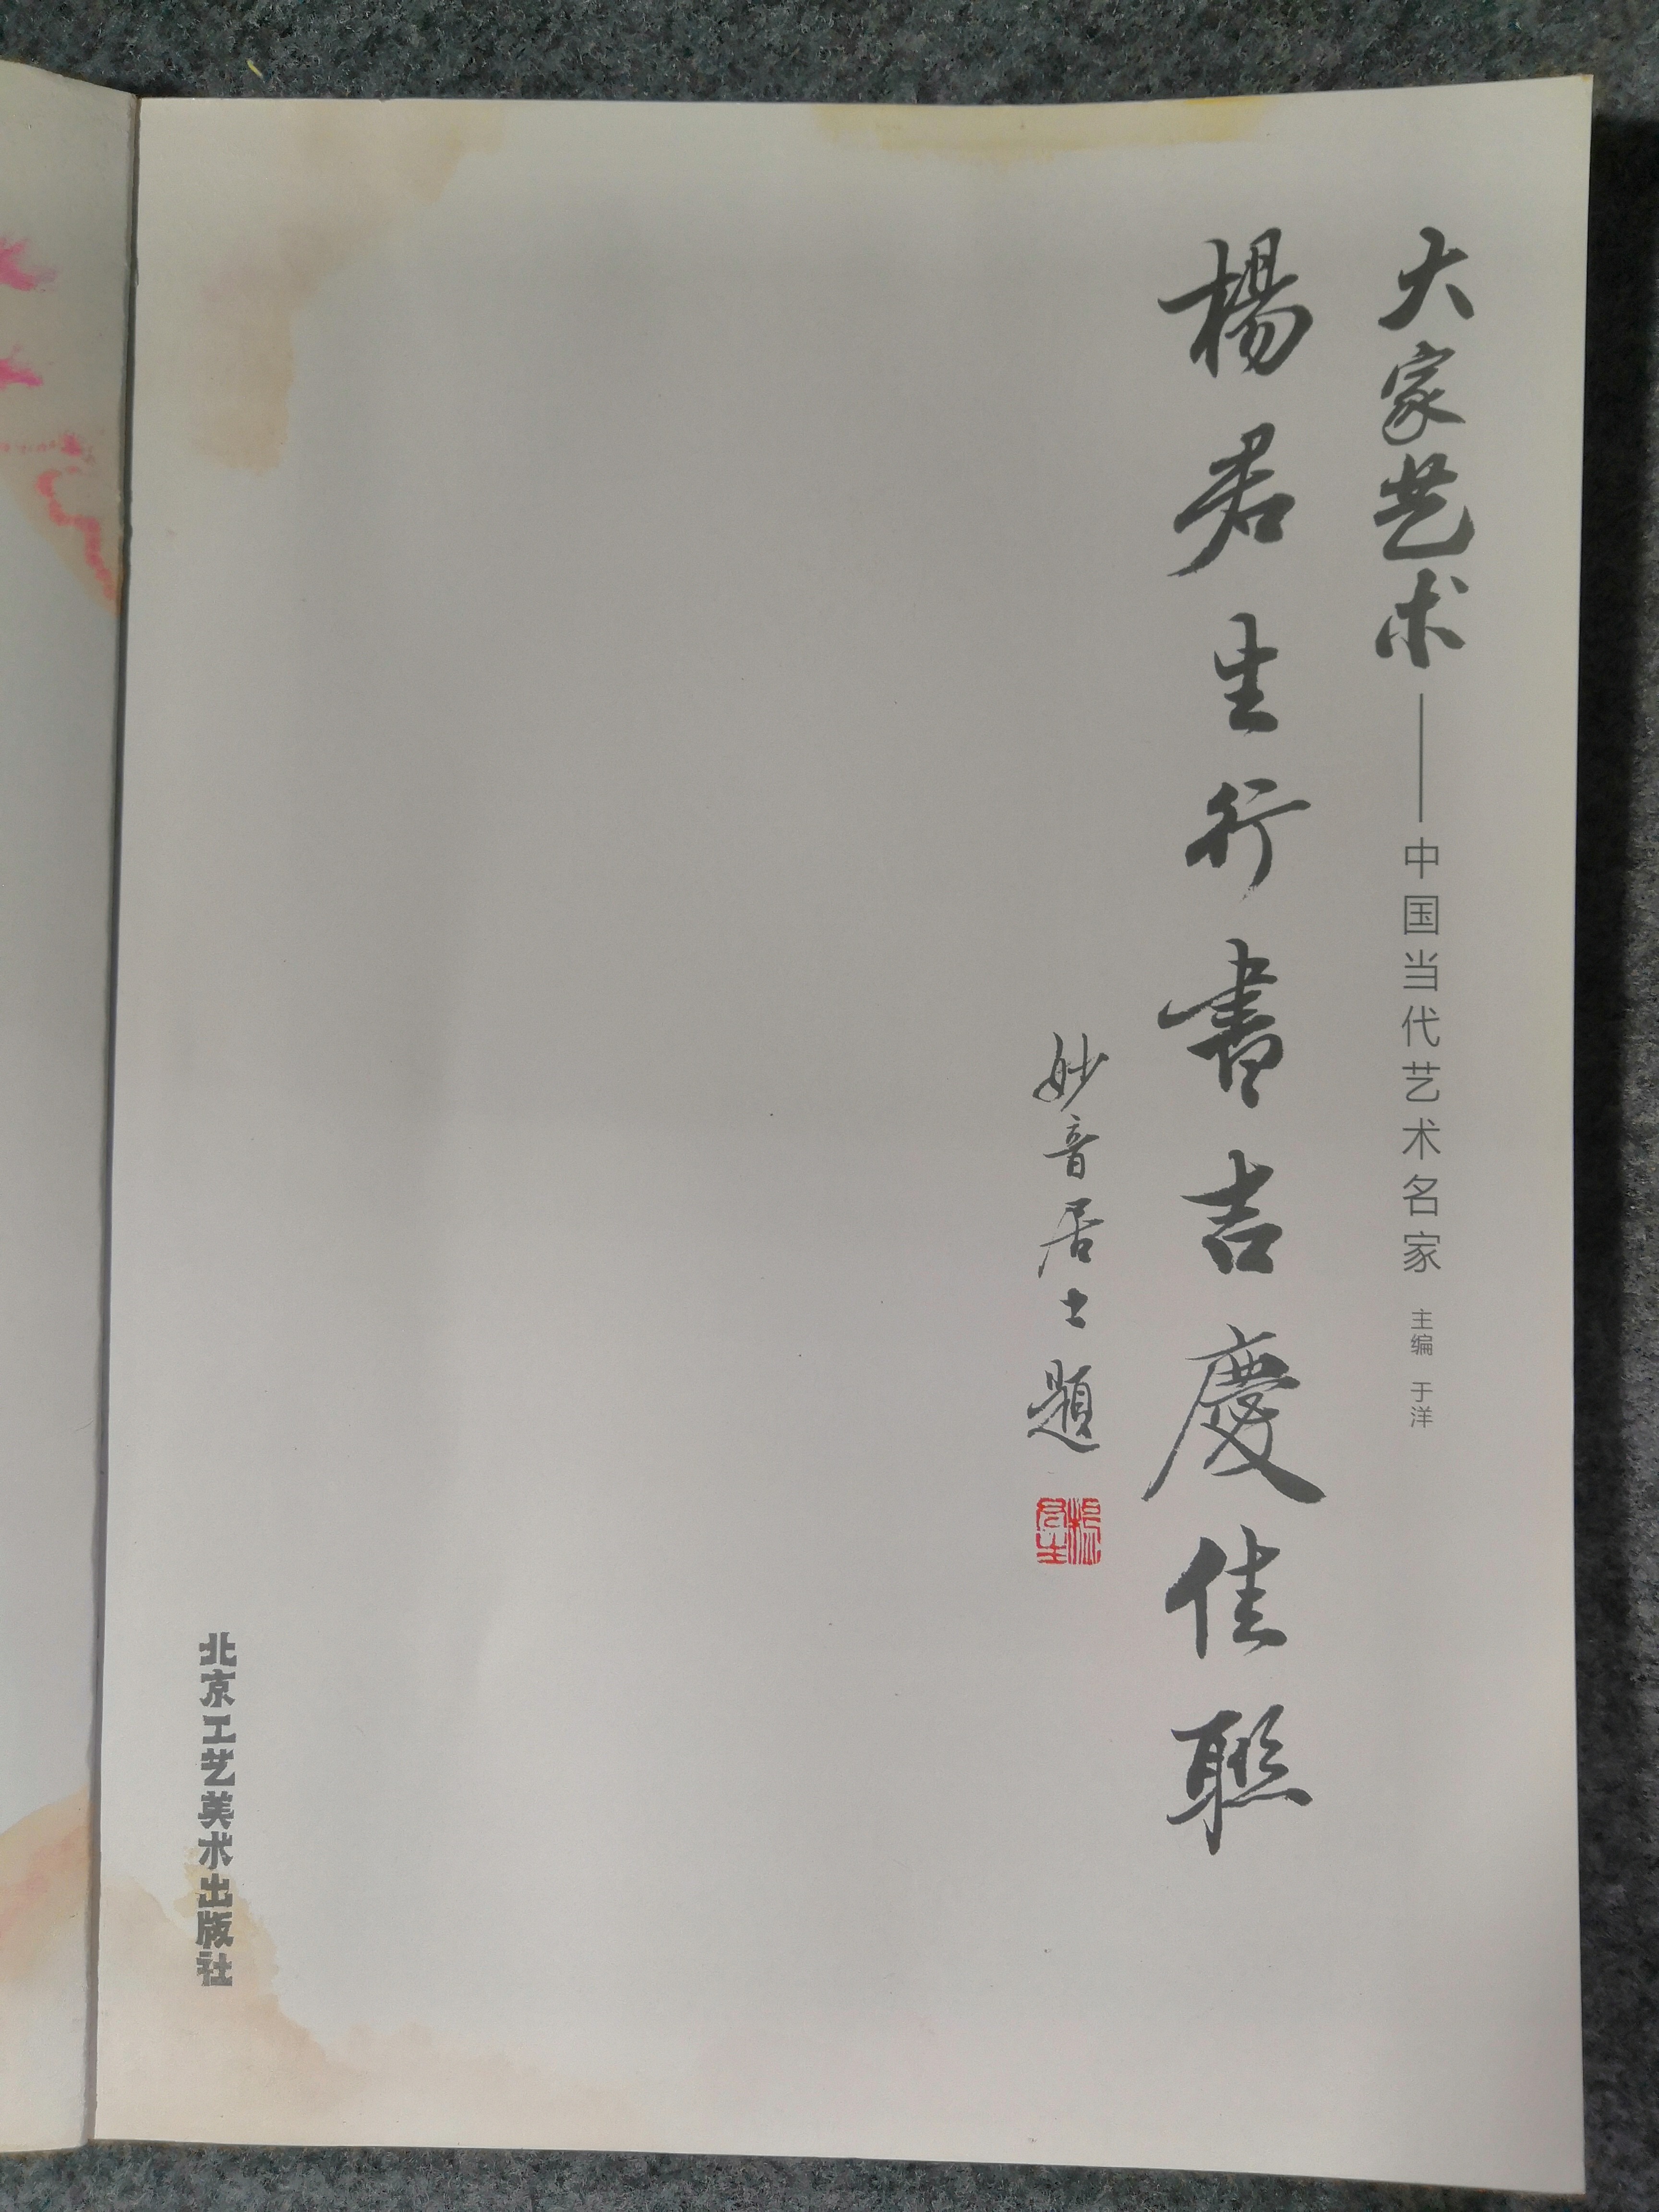 大家艺术——中国当代艺术名家 主编 于洋
楊君生行書吉慶佳聯
妙音居士題
楊君生
北京工艺美术出版社